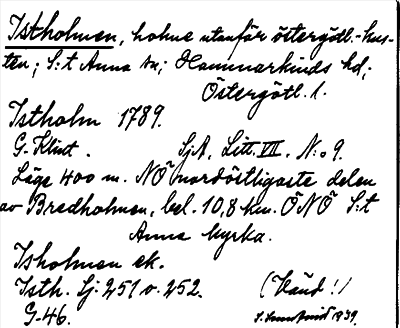 Istholmen, holme utanför östergötl.-kus-
ten; S:t Anna sn; Hammarkinds hd;
Östergötl. l.
Istholm 1789.
G. Klint. SjA, Litt. VII. N:o 9.
Läge 400 m. NÖ nordöstligaste delen
av Bredholmen, bel. 10,8 km. ÖNÖ S:t
Anna kyrka.
Isholmen ek.
Isth. Lj: 251 o. 252. (Känd!)
G-46. 1939.